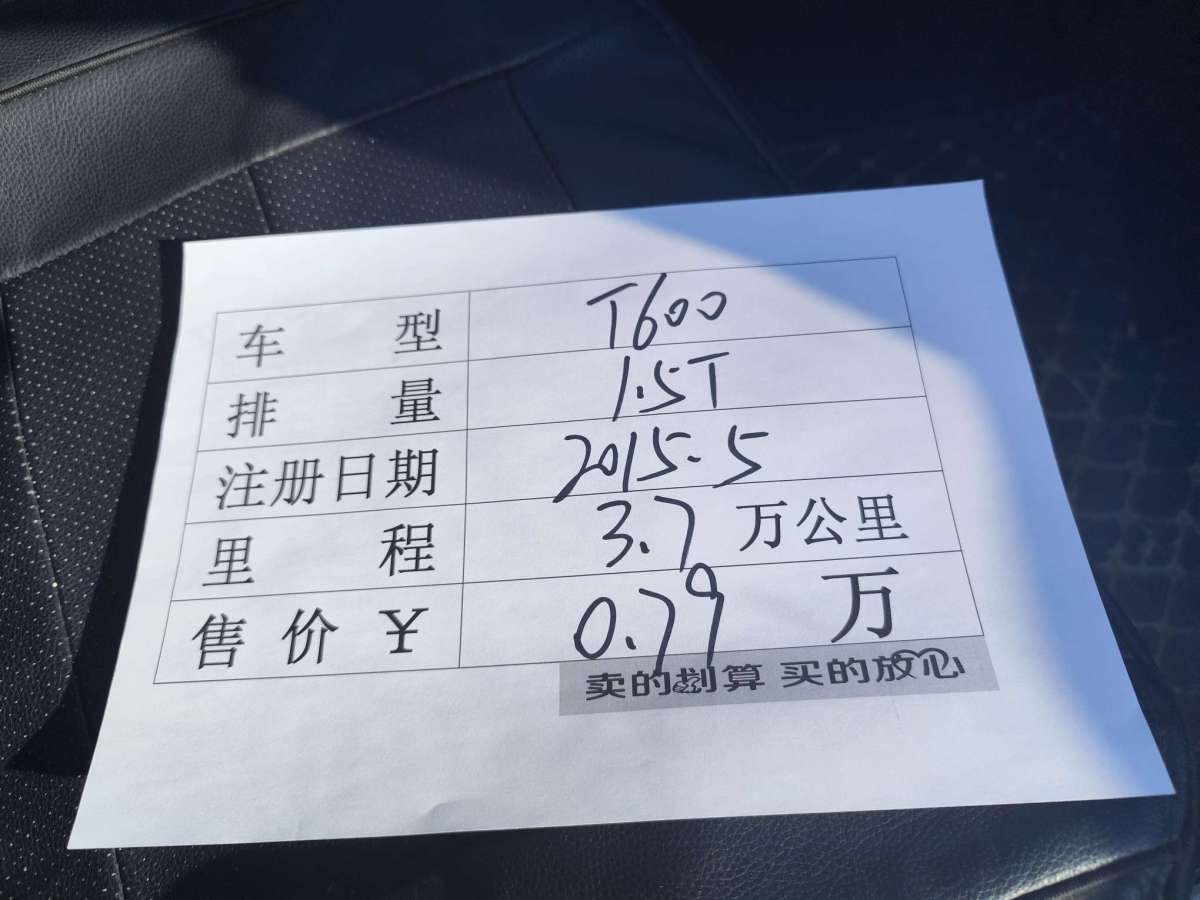 车型 T600
排量 1.5T
注册日期 2015.5
里程 3.7 万公里
售价￥ 0.79 万
卖的划算 买的放心